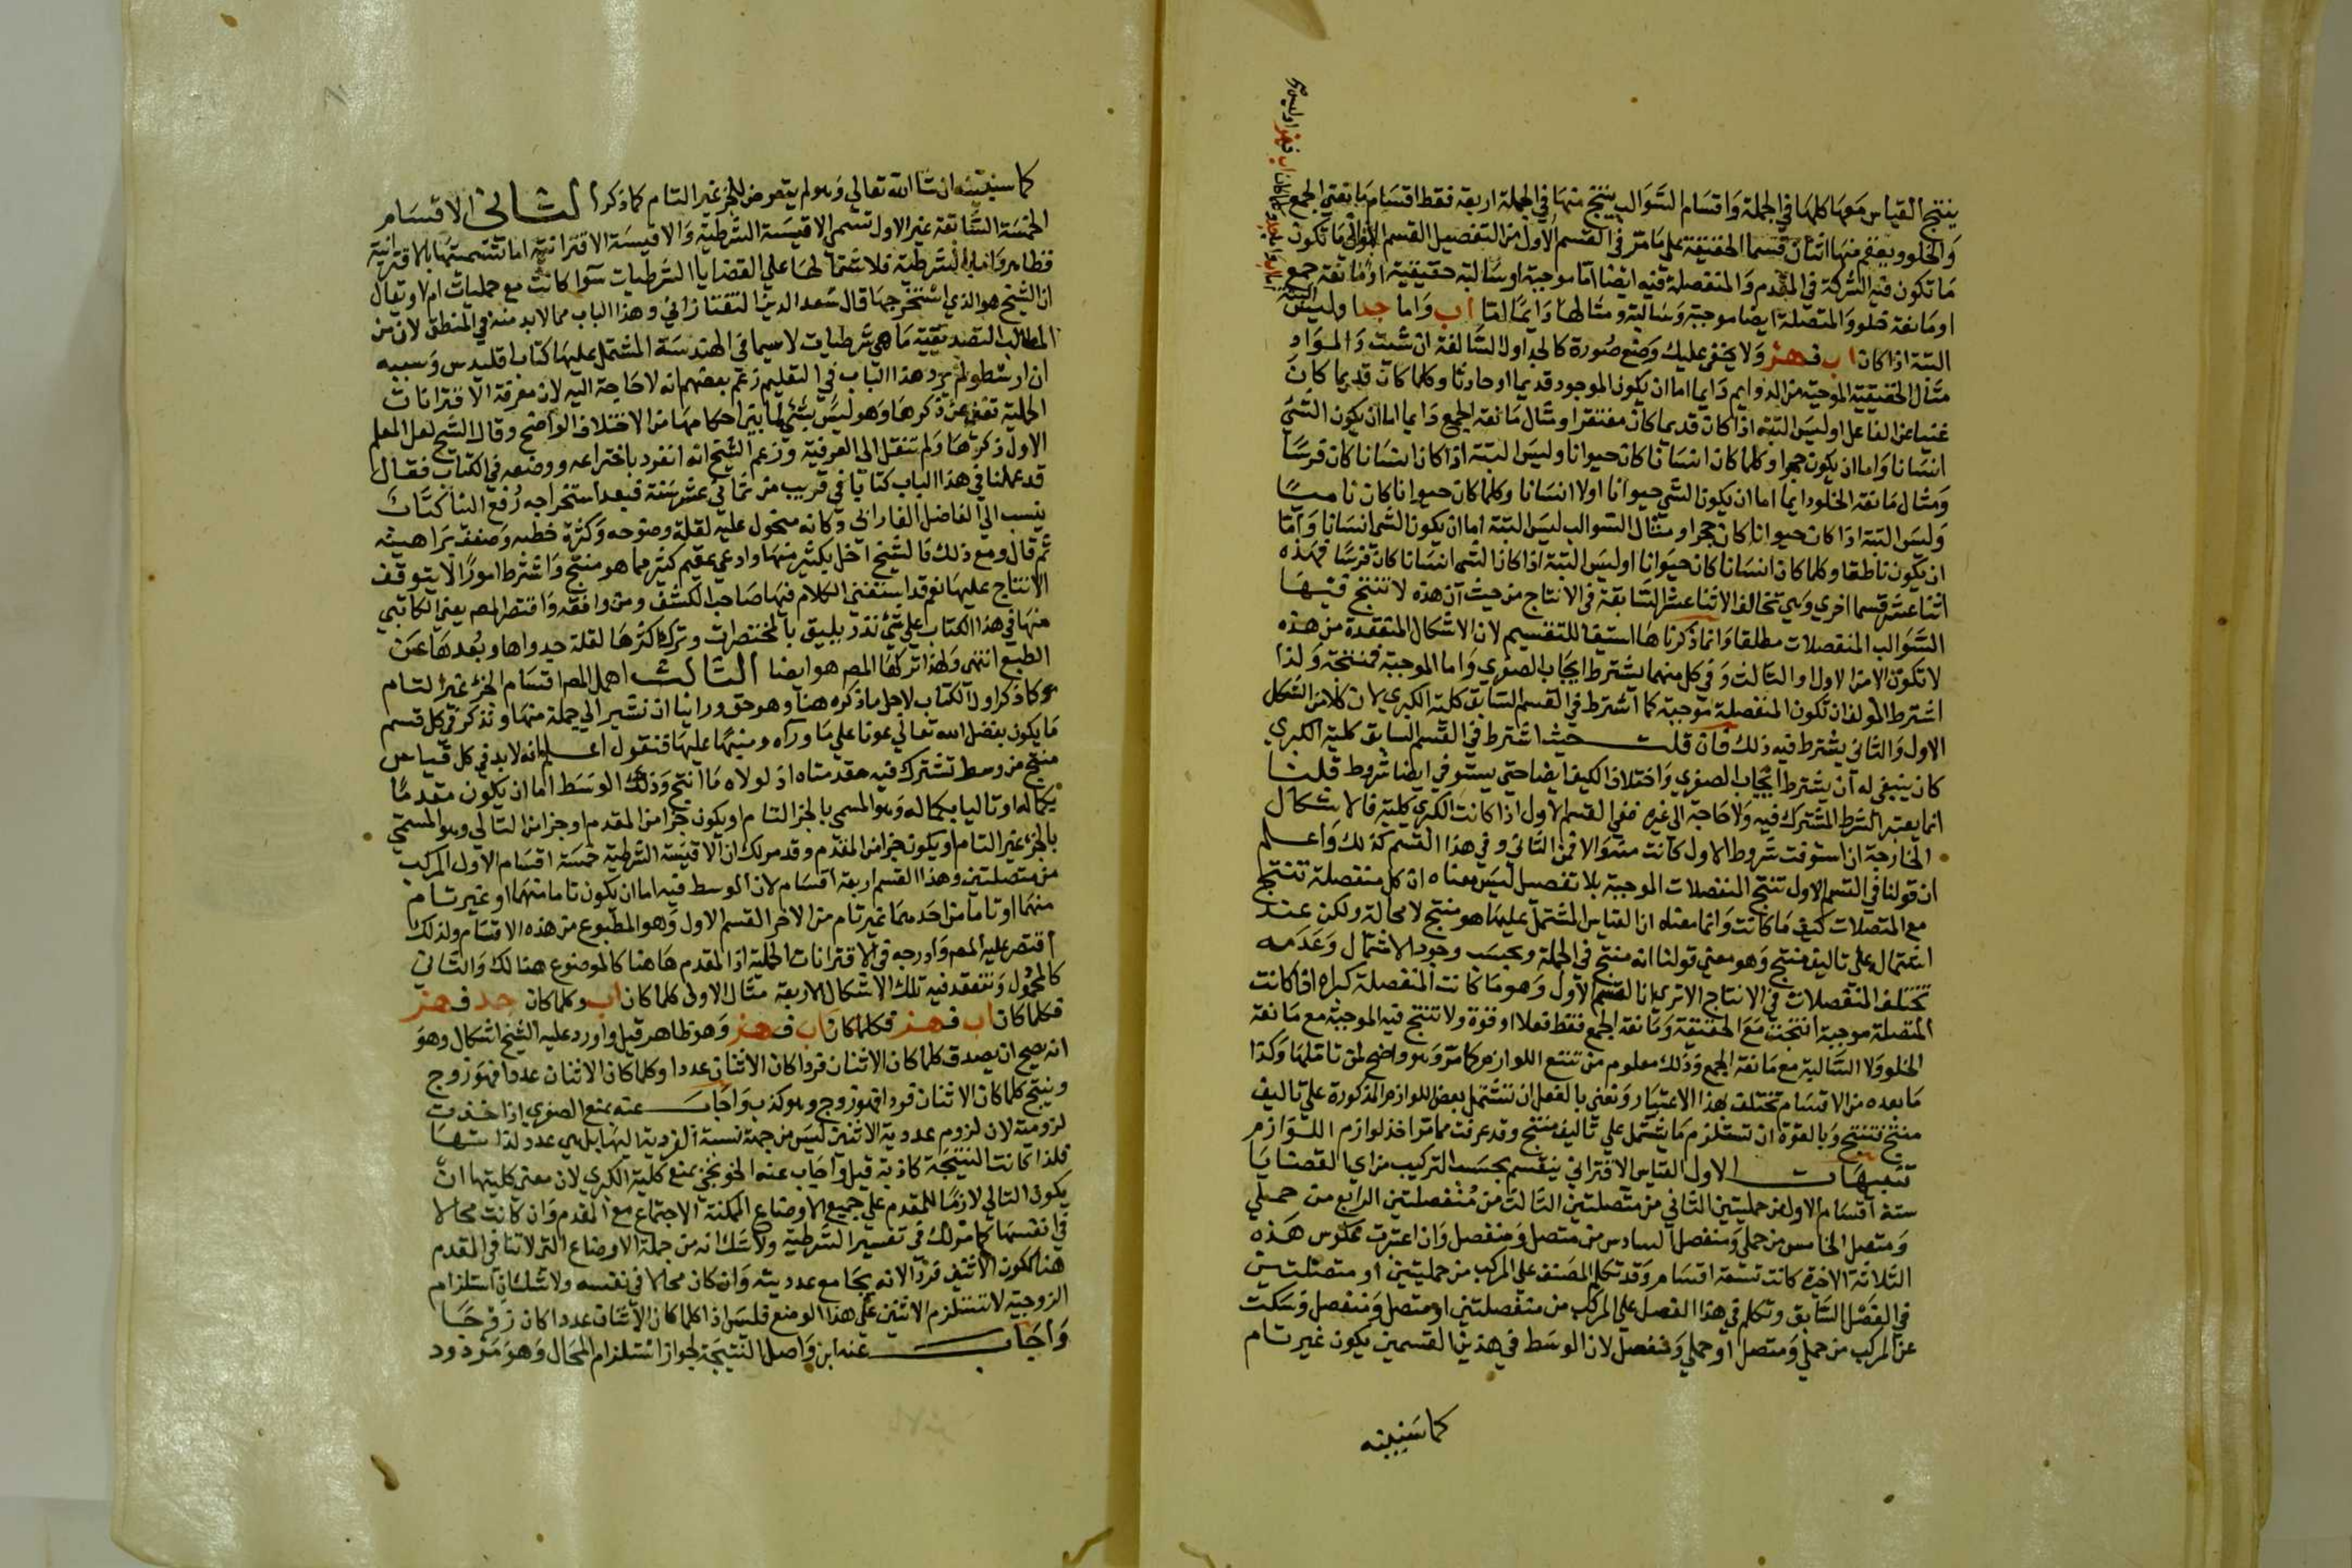 ينتج القياس معها كلها في الجملة واقسام السوالب ينتج منها في الجملة اربعة فقط اقسام مانعتي الجمع
والخلو ويعقم منها اثنان قسما الحقيقية على ما مر في القسم الاول من التفصيل القسم الثاني ما تكون
ما تكون فيه الشركة في المقدم والمنفصلة فيه ايضا اما موجبة او سالبة حقيقية او مانعة جمع
او مانعة خلو والمتصلة ايضا موجبة وسالبة ومثالها دايما اما اب واما جد وليس
البتة اذا كان اب فهز ولا يخفى عليك وضع صورة كالجداول السالفة ان شئت والمواد
مثال الحقيقية الموجبة من الدوايم دايما اما ان يكون الموجود قديما او حادثا وكلما كان قديما كان
غنيا عن الفاعل او ليس البتة اذا كان قديما كان مفتقرا ومثال مانعة الجمع دايما اما ان يكون الشئ
انسانا واما ان يكون حجرا وكلما كان انسانا كان حيوانا وليس البتة اذا كان انسانا كان فرسا
ومثال مانعة الخلو دايما اما ان يكون الشي حيوانا او لا انسانا وكلما كان حيوانا كان ناميا
وليس البتة اذا كان حيوانا كان حجرا ومثال السوالب ليس البتة اما ان يكون الشي انسانا واما
ان يكون ناطقا وكلما كان انسانا كان حيوانا او ليس البتة اذا كان الشي انسانا كان فرسا فهذه
اثنا عشر قسما اخرى وهي تخالف الاثنا عشر السابقة في الانتاج من حيث ان هذه لا تنتج فيها
السوالب المنفصلات مطلقا وانما ذكرناها استيفا للتقسيم لان الاشكال المنعقدة من هذه
لا تكون الا من الاول او الثالث وفي كل منهما يشترط ايجاب الصغرى واما الموجبة فمنتجة ولذا
اشترط المولف ان تكون المنفصلة موجبة كما اشترط في القسم السابق كلية الكبرى لان كلا من الشكل
الاول والثاني يشترط فيه ذلك فان قلت حيث اشترط في القسم السابق كلية الكبرى
كان ينبغي له ان يشترط ايجاب الصغرى واختلاف الكيف ايضا حتى يستوفي ايضا شروط قلنا
انما يعتبر الشرط المشترك فيه ولا حاجة الى غيره ففي القسم الاول اذا كانت الكبرى كلية فالاشكال
الخارجة ان استوفت شروط الاول كانت منه والا فمن الثاني وفي هذا القسم كذلك واعلم
ان قولنا في القسم الاول تنتج المنفصلات الموجبة بلا تفصيل ليس معناه ان كل منفصلة تنتج
مع المتصلات كيف ما كانت وانما معناه ان القياس المشتمل عليها هو منتج لا محالة ولكن عند
اشتماله على تاليف منتج وهو معنى قولنا انه منتج في الجملة وبحسب وجود الاشتمال وعدمه
تختلف المنفصلات في الانتاج الا ترى ان القسم الاول وهو ما كانت المنفصلة كبراه اذا كانت
المتصلة موجبة انتجت مع الحقيقية ومانعة الجمع فقط فعلا او قوة ولا تنتج فيه الموجبة مع مانعة
الخلو ولا السالبة مع مانعة الجمع وذلك معلوم من تتبع اللوازم كما مر وهو واضح لمن تاملها وكذا
ما بعده من الاقسام تختلف بهذا الاعتبار ونعني بالفعل ان تشتمل بعض اللوازم المذكورة على تاليف
منتج فتنتج وبالقوة ان تستلزم ما يشتمل على تاليف منتج وقد عرفت مما مر اخذ لوازم اللوازم
تنبيهات الاول القياس الاقتراني ينقسم بحسب التركيب من اي القضايا
ستة اقسام الاول من حمليتين الثاني من متصلتين الثالث من منفصلتين الرابع من حملي
ومتصل الخامس من حملي ومنفصل السادس من متصل ومنفصل وان اعتبرت عكوس هذه
الثلاثة الاخيرة كانت تسعة اقسام وقد تكلم المصنف على المركب من حمليتين او متصلتين
في الفصل السابق وتكلم في هذا الفصل على المركب من منفصلتين او متصل ومنفصل وسكت
عن المركب من حملي ومتصل او حملي ومنفصل لان الوسط في هذين القسمين يكون غير تام
كما سنبينه
كما سنبينه ان شا الله تعالى وهو لم يتعرض للجزء غير التام كما ذكر الثاني الاقسام
الخمسة السابقة غير الاول تسمى الاقيسة الشرطية والاقيسة الاقترانية اما تسميتها بالاقترانية
فظاهر واما بالشرطية فلاشتمالها على القضايا الشرطيات سوا كانت مع حمليات ام لا ويقال
ان الشيخ هو الذي استخرجها قال سعد الدين التفتازاني وهذا الباب مما لابد منه في المنطق لان من
المطالب التصديقية ما هي شرطيات لاسيما في الهندسة المشتمل عليها كتاب اقليدس وسببه
ان ارسطو لم يورد هذا الباب في التعليم زعم بعضهم انه لا حاجة اليه لان معرفة الاقترانات
الحملية تغني عن ذكرها وهو ليس بشي لما بين احكامهما من الاختلاف الواضح وقال الشيخ لعل المعلم
الاول ذكرها ولم تنقل الى العرفية وزعم الشيخ انه انفرد باختراعه ووضعه في الكتاب فقال
قد عملنا في هذا الباب كتابا في قريب من ثماني عشر سنة فبعد استخراجه رفع الينا كتاب
ينسب الى الفاضل الفارابي وكانه منحول عليه لقلة وضوحه وكثرة خطبه وضعف براهينه
ثم قال ومع ذلك فالشيخ اخل بكثير منها وادعى عقم كثير مما هو منتج واشترط امورا لا يتوقف
الانتاج عليها نعم قد استقصى الكلام فيها صاحب الكشف ومن وافقه واقتصر المص يعني الكاتبي
منها في هذا الكتاب على شئ نذر يليق بالمختصرات وترك اكثرها لقلة جدواها وبعدها عن
الطبع انتهى ولهذا تركها المص هو ايضا الثالث اهمل المص اقسام الجزء غير التام
كما ذكر اول الكتاب لاجل ما ذكره هنا وهو حق وراينا ان نشير الى جملة منها ونذكر في كل قسم
ما يكون بفضل الله تعالى عونا على ما وراه ومنبها عليها فنقول اعلم انه لابد في كل قياس
منتج من وسط تشترك فيه مقدمتاه اذ لولاه ما انتج وذلك الوسط اما ان يكون مقدما
بكماله او تاليا بكماله وهو المسمى بالجزء التام او يكون جزا من المقدم او جزا من التالي وهو المسمى
بالجزء غير التام او يكون جزا من المقدم وقد مر لك ان الاقيسة الشرطية خمسة اقسام الاول المركب
من متصلتين وهذا القسم اربعة اقسام لان الوسط فيه اما ان يكون تاما منهما او غير تام
منهما او تاما من احدهما غير تام من الاخر القسم الاول وهو المطبوع من هذه الاقسام ولذلك
اقتصر عليه المص وادرجه في الاقترانات الحملية اذ المقدم هاهنا كالموضوع هنالك والتالي
كالمحمول وتنعقد فيه تلك الاشكال الاربعة مثال الاول كلما كان اب وكلما كان جد فهز
فكلما كان اب فهز فكلما كان اب فهز وهو ظاهر قيل واورد عليه الشيخ اشكال وهو
انه يصح ان يصدق كلما كان الاثنان فردا كان الاثنان عددا وكلما كان الاثنان عددا فهو زوج
وينتج كلما كان الاثنان فردا فهو زوج وهو كذب واجاب عنه بمنع الصغرى اذا اخذت
لزومية لان لزوم عددية الاثنين ليس من جهة نسبة الفردية اليها بل هي عدد لذاتها
فلذا كانت النتيجة كاذبة قيل واجاب عنه الخونجي بمنع كلية الكبرى لان معنى كليتها ان
يكون التالي لازما للمقدم على جميع الاوضاع الممكنة الاجتماع مع المقدم وان كانت محالا
في انفسها كما مر لك في تفسير الشرطية ولا شك انه من جملة الاوضاع التي لا تنافي المقدم
هنا كون الاثنين فردا لانه يجامع عدديته وان كان محالا في نفسه ولا شك ان استلزام
الزوجية لا تستلزم الاثنين على هذا الوضع فليس اذا كلما كان الاثنان عددا كان زوجا
واجاب عنه ابن واصل النتيجة لجواز استلزام المحال وهو مردود